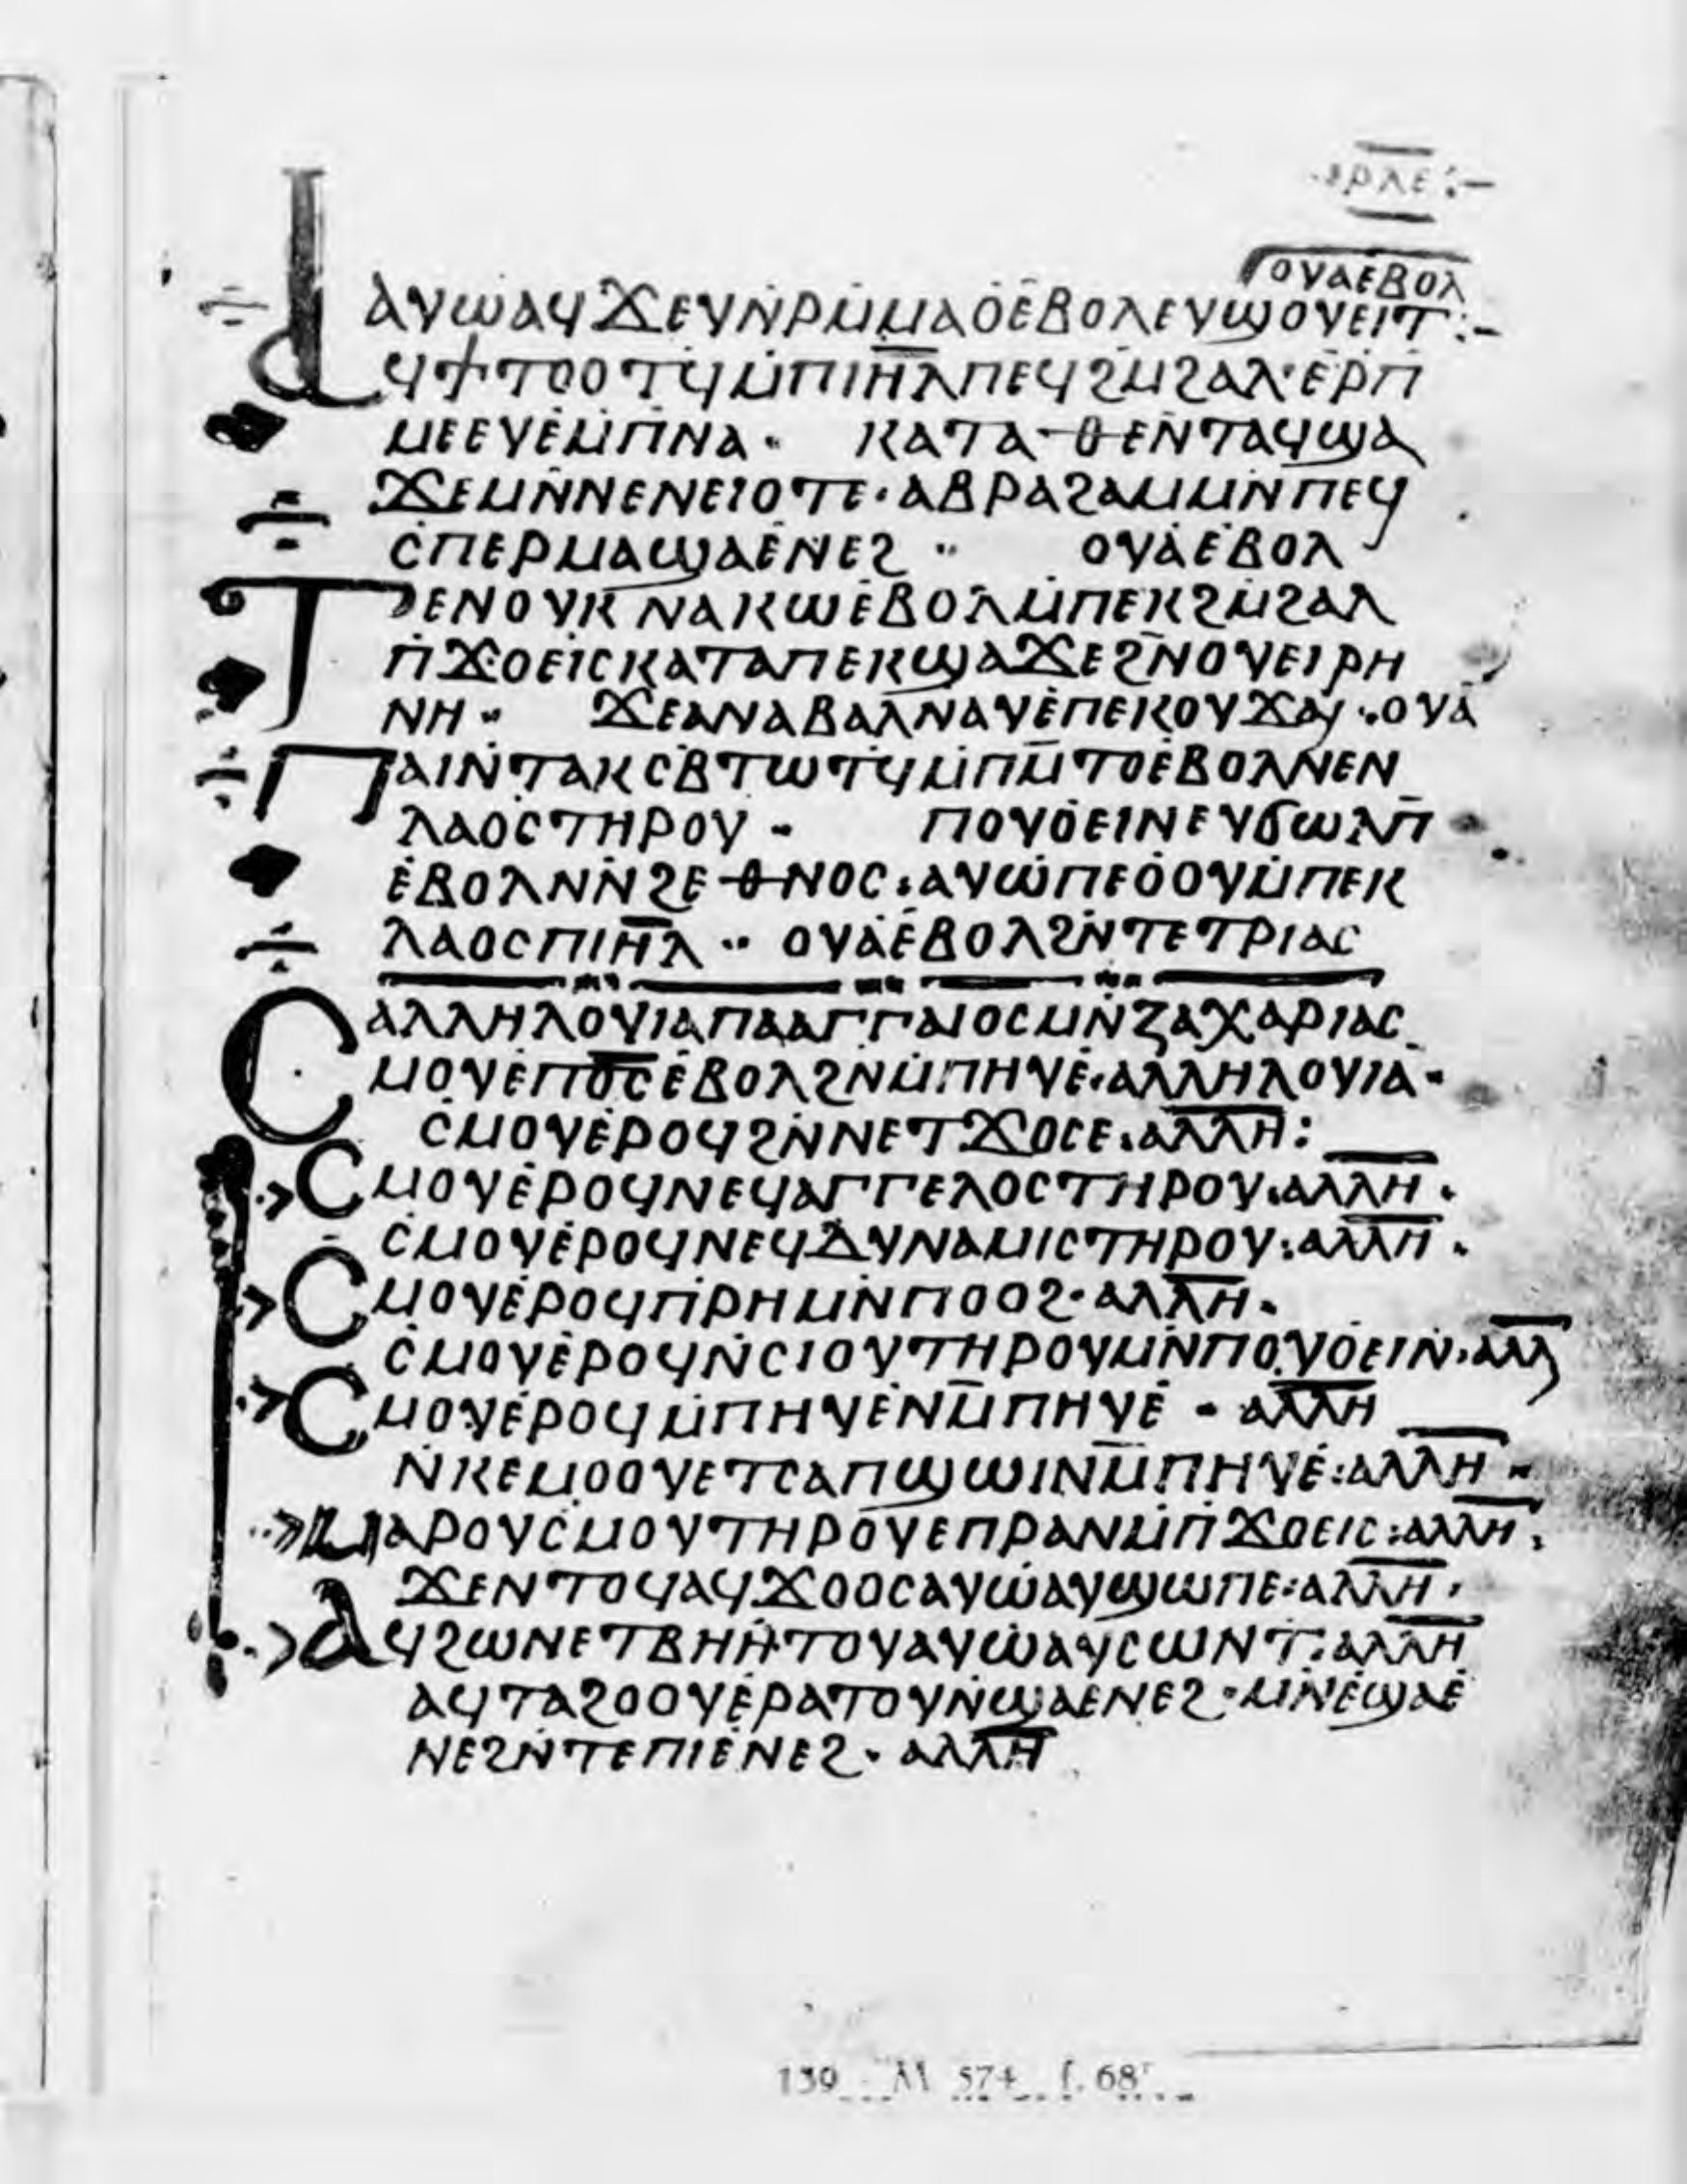 ⲣⲗⲉ:–
ⲟⲩⲁⲉⲃⲟⲗ
ⲁⲩⲱⲁϥϫⲉⲩⲛ̇ⲣⲙ̇ⲙⲁⲟ̇ⲉ̇ⲃⲟⲗⲉⲩϣⲟⲩⲉⲓⲧ:–
ⲁϥϯⲧⲟⲟⲧϥⲙ̇ⲡⲓⲏ̅ⲗ̅ⲡⲉϥϩⲙ̇ϩⲁⲗ·ⲉ̇ⲣⲡ̇
ⲙⲉⲉⲩⲉ̇ⲙ̇ⲡⲛⲁ· ⲕⲁⲧⲁⲑⲉⲛ̇ⲧⲁϥϣⲁ
ϫⲉⲙⲛ̇ⲛⲉⲛⲉⲓⲟⲧⲉ·ⲁⲃⲣⲁϩⲁⲙⲙⲛ̇ⲡⲉϥ
ⲥ̇ⲡⲉⲣⲙⲁϣⲁⲉ̇ⲛⲉϩ·· ⲟⲩⲁ̇ⲉ̇ⲃⲟⲗ
ⲧⲉⲛⲟⲩⲕⲛⲁⲕⲱⲉ̇ⲃⲟⲗⲙ̇ⲡⲉⲕϩⲙ̇ϩⲁⲗ
ⲡ̇ϫⲟⲉⲓⲥⲕⲁⲧⲁⲡⲉⲕϣⲁϫⲉϩⲛ̅ⲟⲩⲉⲓⲣⲏ
ⲛⲏ·· ϫⲉⲁⲛⲁⲃⲁⲗⲛⲁⲩⲉ̇ⲡⲉⲕⲟⲩϫⲁⲓ··ⲟⲩⲁ̇
ⲡⲁⲓⲛ̇ⲧⲁⲕⲥⲃ̇ⲧⲱⲧϥⲙ̇ⲡⲙ̅ⲧⲟⲉ̇ⲃⲟⲗⲛ̇ⲛⲉⲛ
ⲗⲁⲟⲥⲧⲏⲣⲟⲩ· ⲡⲟⲩⲟ̇ⲉⲓⲛⲉⲩϭⲱⲗⲡ̅
ⲉ̇ⲃⲟⲗⲛⲛ̇ϩⲉⲑⲛⲟⲥ:ⲁⲩⲱ̇ⲡⲉⲟ̇ⲟⲩⲙ̇ⲡⲉⲕ
ⲗⲁⲟⲥⲡⲓⲏ̅ⲗ̅·· ⲟⲩⲁ̇ⲉ̇ⲃⲟⲗϩⲛ̇ⲧⲉⲧⲣⲓⲁⲥ
ⲁⲗⲗⲏⲗⲟⲩⲓⲁⲡⲁⲁⲅⲅⲁⲓⲟⲥⲙⲛ̇ⲍⲁⲭⲁⲣⲓⲁⲥ
ⲥⲙⲟⲩⲉ̇ⲡⲟ̅ⲥ̅ⲉ̇ⲃⲟⲗϩⲛⲙ̇ⲡⲏⲩⲉ̇·ⲁⲗⲗⲏⲗⲟⲩⲓⲁ·
ⲥ̇ⲙⲟⲩⲉ̇ⲣⲟϥϩⲛ̇ⲛⲉⲧϫⲟⲥⲉ·ⲁⲗⲗ̅ⲏ̅:
ⲥⲙⲟⲩⲉ̇ⲣⲟϥⲛⲉϥⲁⲅⲅⲉⲗⲟⲥⲧⲏⲣⲟⲩ·ⲁⲗⲗ̅ⲏ̅·
ⲥ̇ⲙⲟⲩⲉ̇ⲣⲟϥⲛⲉϥⲇⲩⲛⲁⲙⲓⲥⲧⲏⲣⲟⲩ:ⲁⲗⲗ̅ⲏ̅·
ⲥⲙⲟⲩⲉ̇ⲣⲟϥⲡ̇ⲣⲏⲙⲛ̇ⲡⲟⲟϩ·ⲁⲗⲗ̅ⲏ̅·
ⲥ̇ⲙⲟⲩⲉ̇ⲣⲟϥⲛ̇ⲥⲓⲟⲩⲧⲏⲣⲟⲩⲙⲛ̇ⲡⲟⲩⲟⲉⲓⲛ·ⲁⲗⲗ̅
ⲥⲙⲟⲩⲉ̇ⲣⲟϥⲙ̇ⲡⲏⲩⲉ̇ⲛⲙ̅ⲡⲏⲩⲉ̇·ⲁⲗⲗ̅ⲏ̅
ⲛ̇ⲕⲉⲙⲟⲟⲩⲉⲧⲥⲁⲡϣⲱⲓⲛⲙ̅ⲡⲏⲩⲉ̇:ⲁⲗⲗ̅ⲏ̅·
ⲙⲁⲣⲟⲩⲥ̇ⲙⲟⲩⲧⲏⲣⲟ̇ⲩⲉⲡⲣⲁⲛⲙ̇ⲡ̇ϫⲟⲉⲓⲥ:ⲁⲗⲗ̅ⲏ̅·
ϫⲉⲛⲧⲟϥⲁϥϫⲟⲟⲥⲁⲩⲱ̇ⲁⲩϣⲱⲡⲉ:ⲁⲗⲗ̅ⲏ̅·
ⲁϥϩⲱⲛⲉⲧⲃⲏⲏ̇ⲧⲟⲩⲁⲩⲱ̇ⲁⲩⲥⲱⲛⲧ:ⲁⲗⲗ̅ⲏ̅
ⲁϥⲧⲁϩⲟⲟⲩⲉ̇ⲣⲁⲧⲟⲩⲛ̇ϣⲁⲉⲛⲉϩ·ⲙⲛ̇ⲉ̇ϣⲁⲉ̇
ⲛⲉϩⲛ̇ⲧⲉⲡⲓⲉ̇ⲛⲉϩ·ⲁⲗⲗ̅ⲏ̅
139 M 574 f. 68ʳ